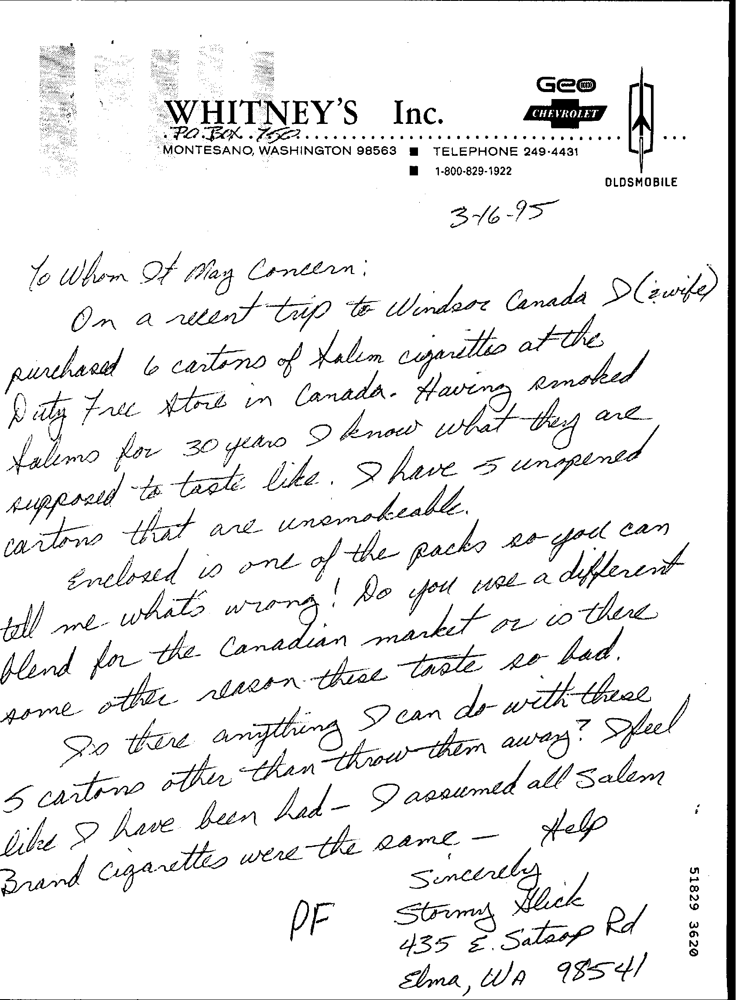 Geo
CHEVROLET
WHITNEY'S Inc.
P.O. Box 750
MONTESANO, WASHINGTON 98563 ■ TELEPHONE 249-4431
■ 1-800-829-1922
OLDSMOBILE
3-16-95
To Whom It May Concern:
On a recent trip to Windsor Canada I (& wife)
purchased 6 cartons of Salem cigarettes at the
Duty Free Store in Canada. Having smoked
Salems for 30 years I know what they are
supposed to taste like. I have 5 unopened
cartons that are unsmokeable.
Enclosed is one of the packs so you can
tell me what's wrong! Do you use a different
blend for the Canadian market or is there
some other reason these taste so bad.
Is there anything I can do with these
5 cartons other than throw them away? I feel
like I have been had - I assumed all Salem
Brand Cigarettes were the same - Help
Sincerely
Stormy Glick
PF
435 E. Satsop Rd
Elma, WA 98541
51829 3620